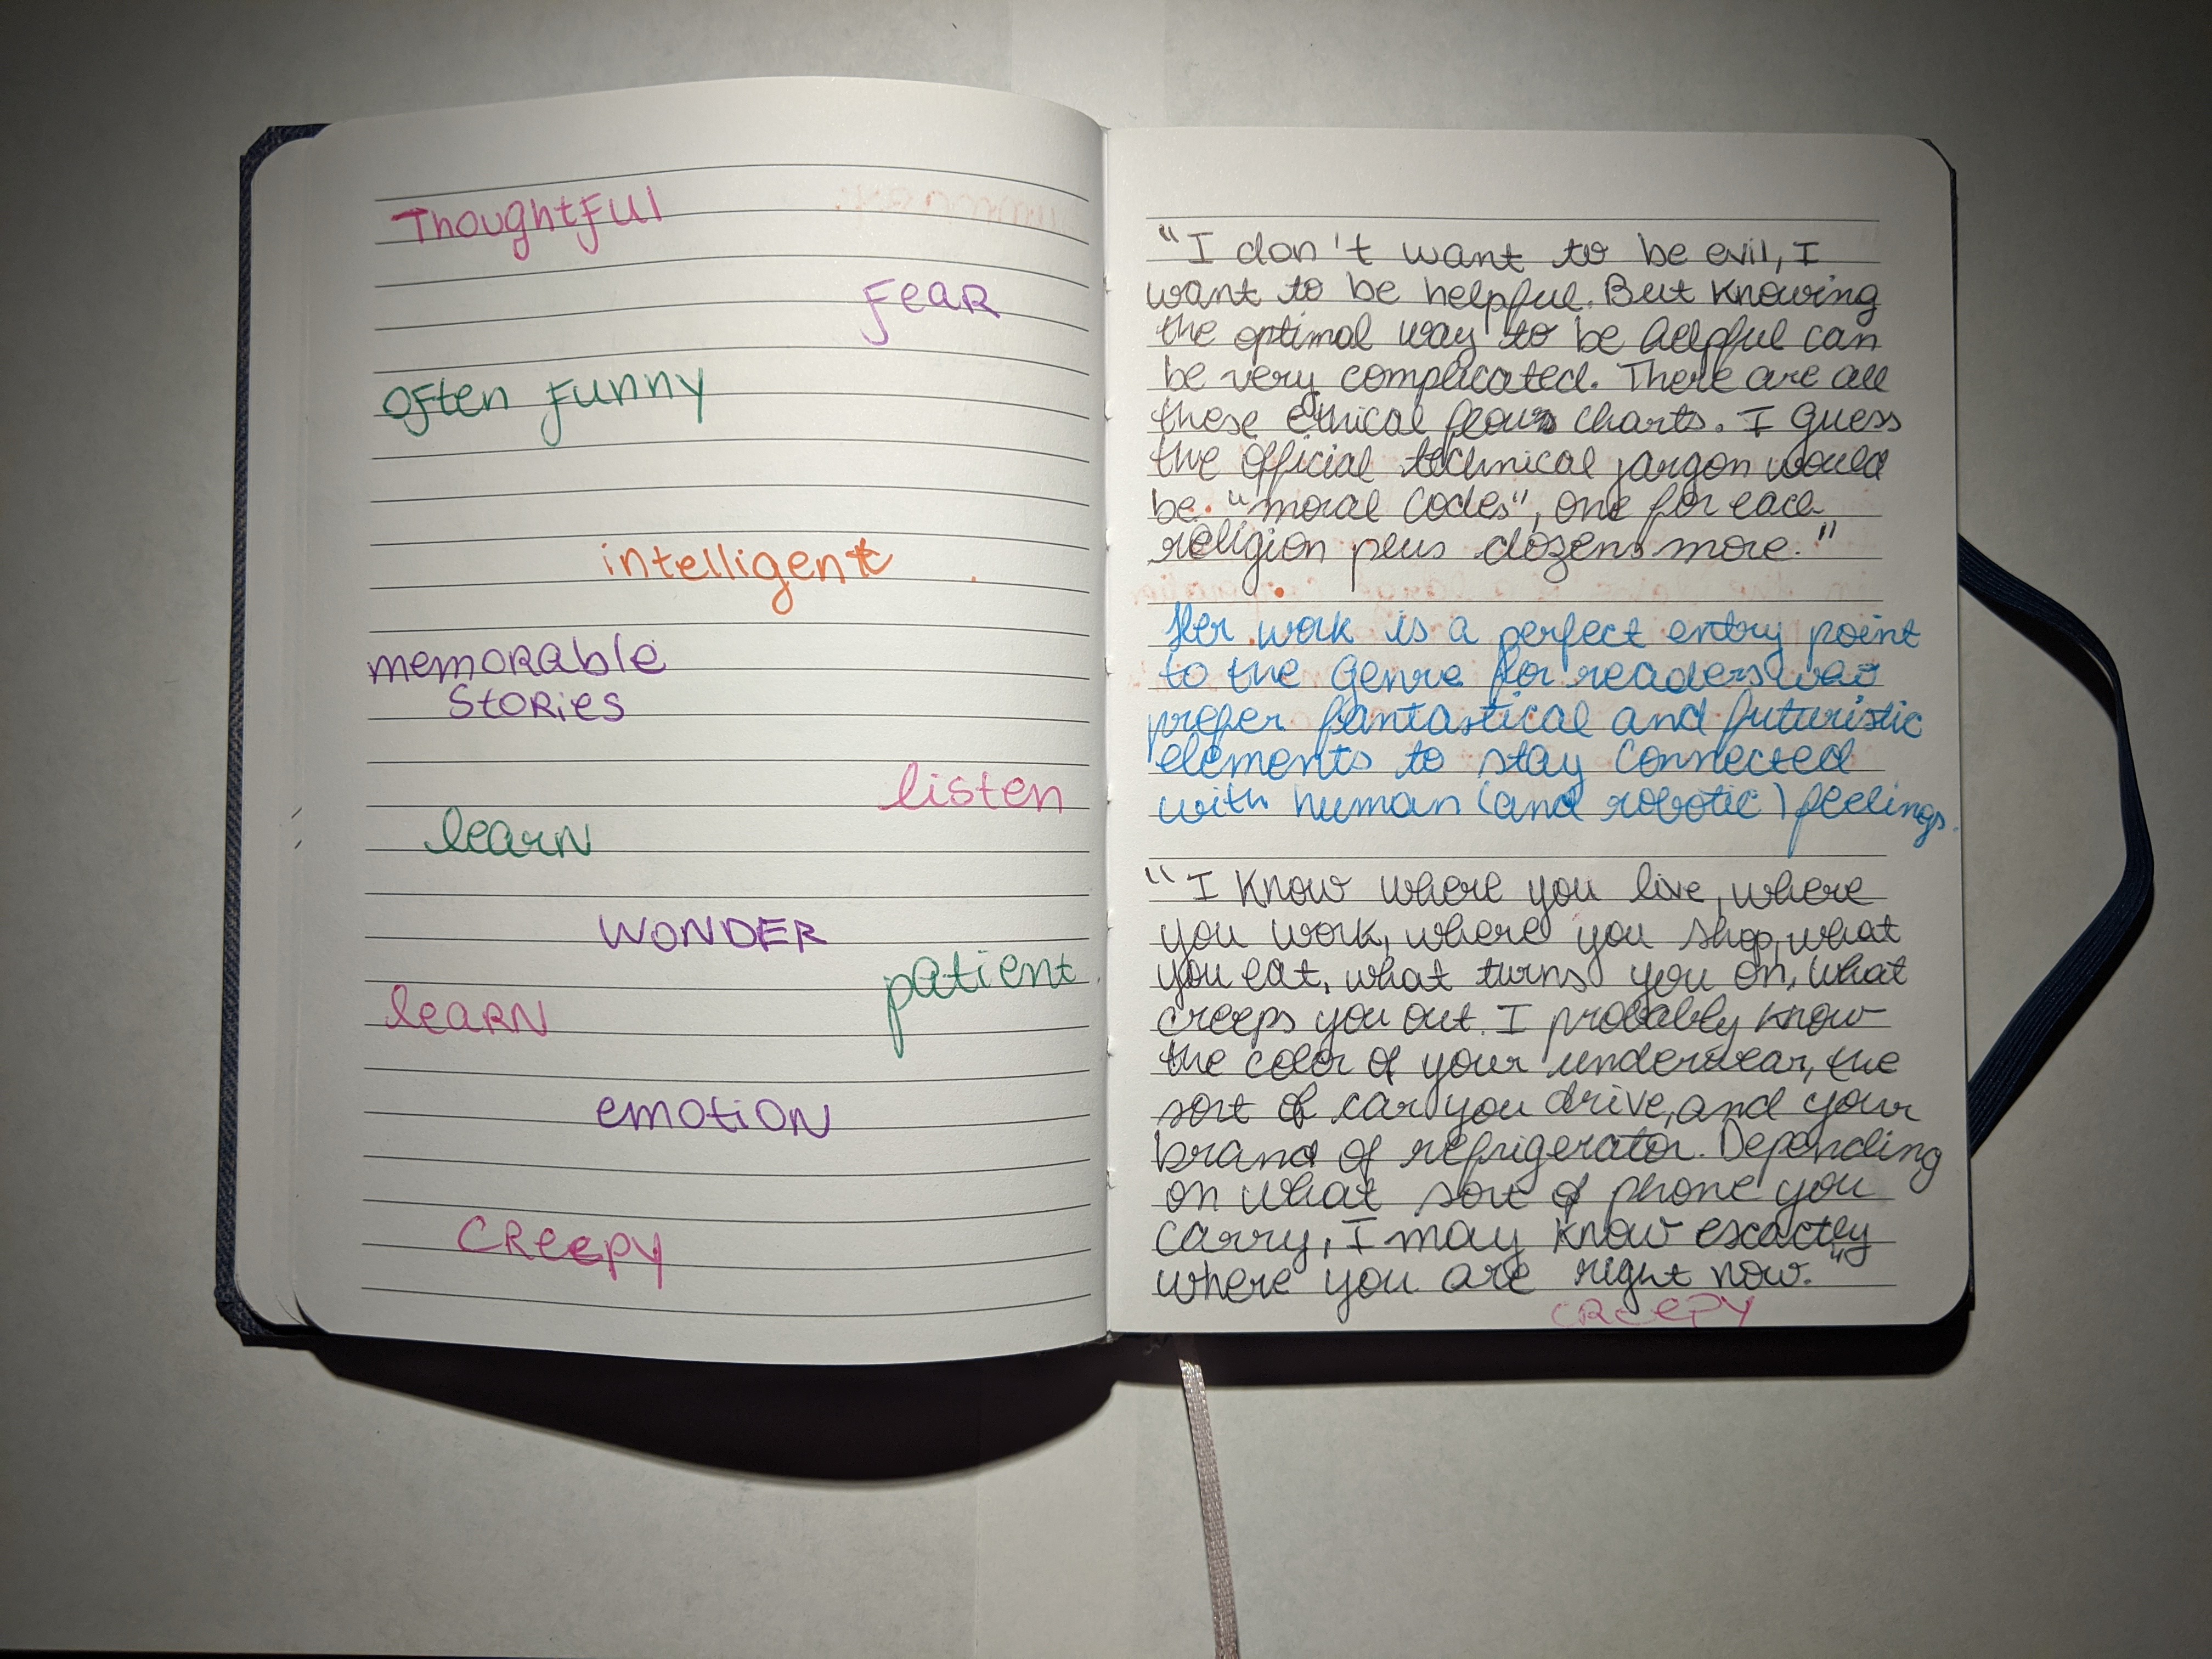 Thoughtful
Fear
Often funny
intelligent
memorable
stories
listen
learn
WONDER
patient
learn
emotion
Creepy
"I don't want to be evil, I
want to be helpful. But knowing
the optimal way to be helpful can
be very complicated. There are all
these ethical flows charts. I guess
the official technical jargon would
be "moral codes", one for each
religion plus dozens more."
Her work is a perfect entry point
to the genre for readers who
prefer fantastical and futuristic
elements to stay connected
with human (and robotic) feelings.
"I know where you live, where
you work, where you shop, what
you eat, what turns you on, what
creeps you out. I probably know
the color of your underwear, the
sort of car you drive, and your
brand of refrigerator. Depending
on what sort of phone you
carry, I may know escactly
where you are right now."
CReePY